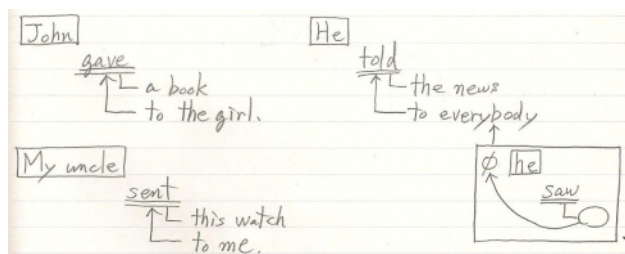 John
gave
a book
to the girl.
He
told
the news
to everybody
ø he
saw
My uncle
sent
this watch
to me.